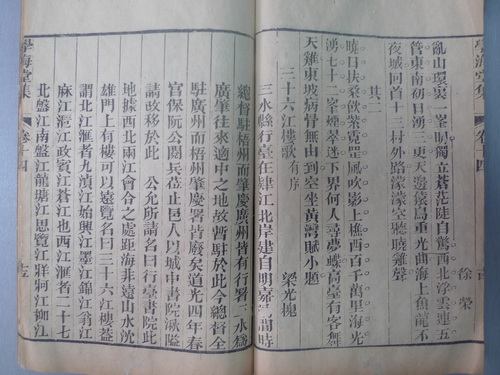 學海堂集 卷十四
徐榮
亂山環裹一峯晴獨立蒼茫陡自驚西北浮雲連五
管東南朝日湧三更天邊猿鳥重光曲海上魚龍不
夜城回首十三村外路濛濛空聽曉雞聲
其二
曉日扶桑飲罡風吹影上樵西百千萬里海光
湧七十二峯煙翠迷下界何人尋夢蝶高臺有客舞
天雞東坡病骨無由到空坐黃灣賦小題
三十六江樓歌有序 梁光槐
三水縣行臺在肄江北岸建自明嘉靖間時
總督駐梧州而肇慶廣州皆有行署三水爲
廣肇往來適中之地故亦設於此今總督全
駐廣州而梧州肇慶署皆廢矣道光四年春
官保阮公閱兵莅止邑人以城中書院湫隘
請改移於此 公允所請名曰行臺書院此
地據西北兩江會合之處距海非遠山水沈
雄門上有樓可以遠覽名曰三十六江樓蓋
謂北江滙者九湞江始興江墨江錦江翁江
麻江滙江政賓江蒼江也西江滙者二十七
北盤江南盤江龍塘江思覽江牂牁江柳江
學海堂集 卷十四 十五